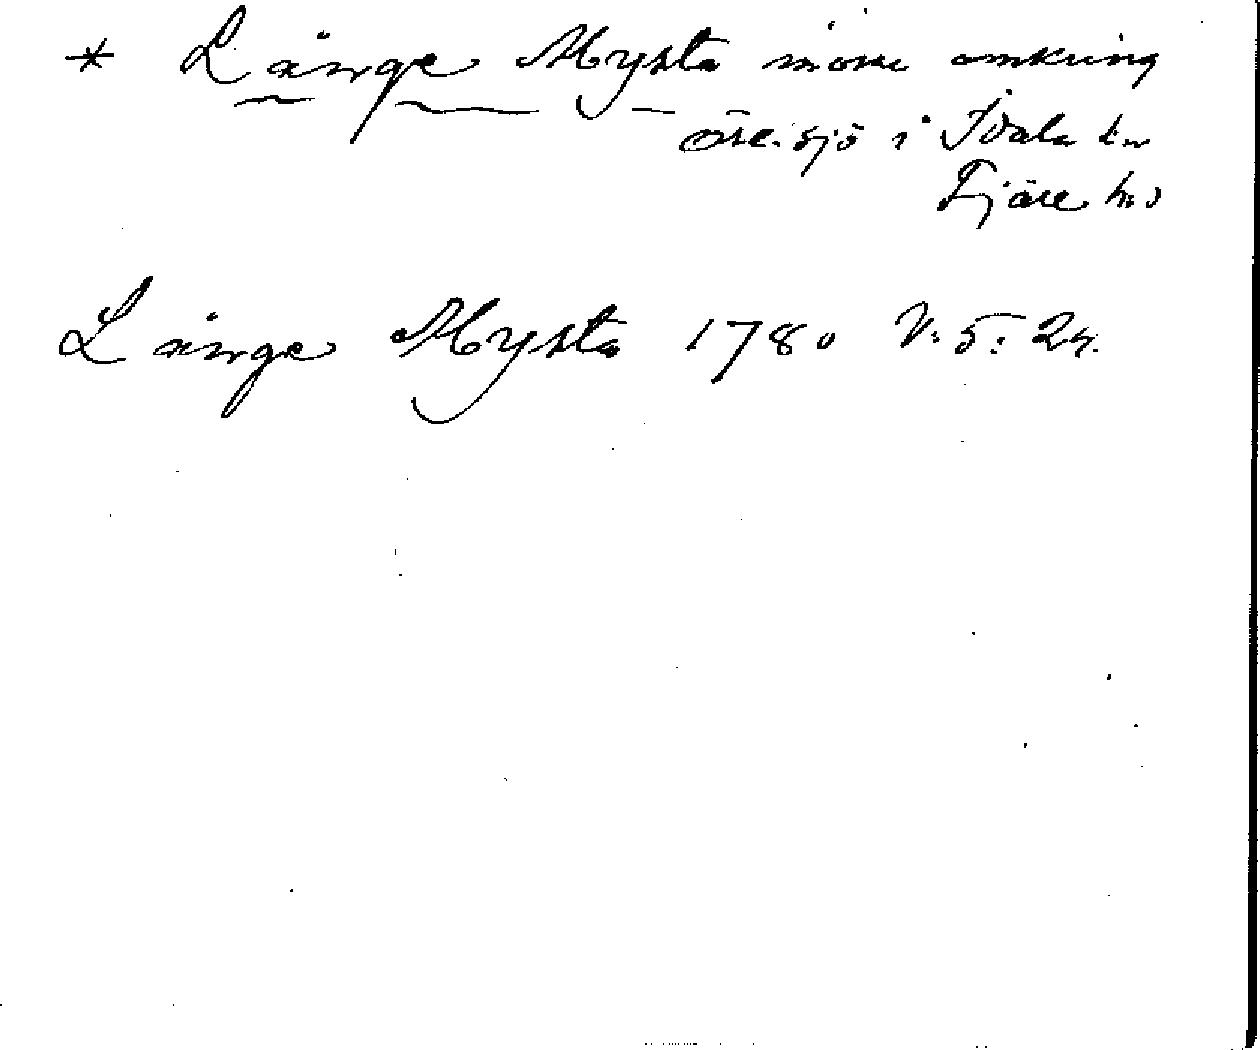 * Långe Mysta mosse omkring
Öre-sjö i Idala sn
Fjäre hd
Långe Mysta 1780 V. 5: 24.